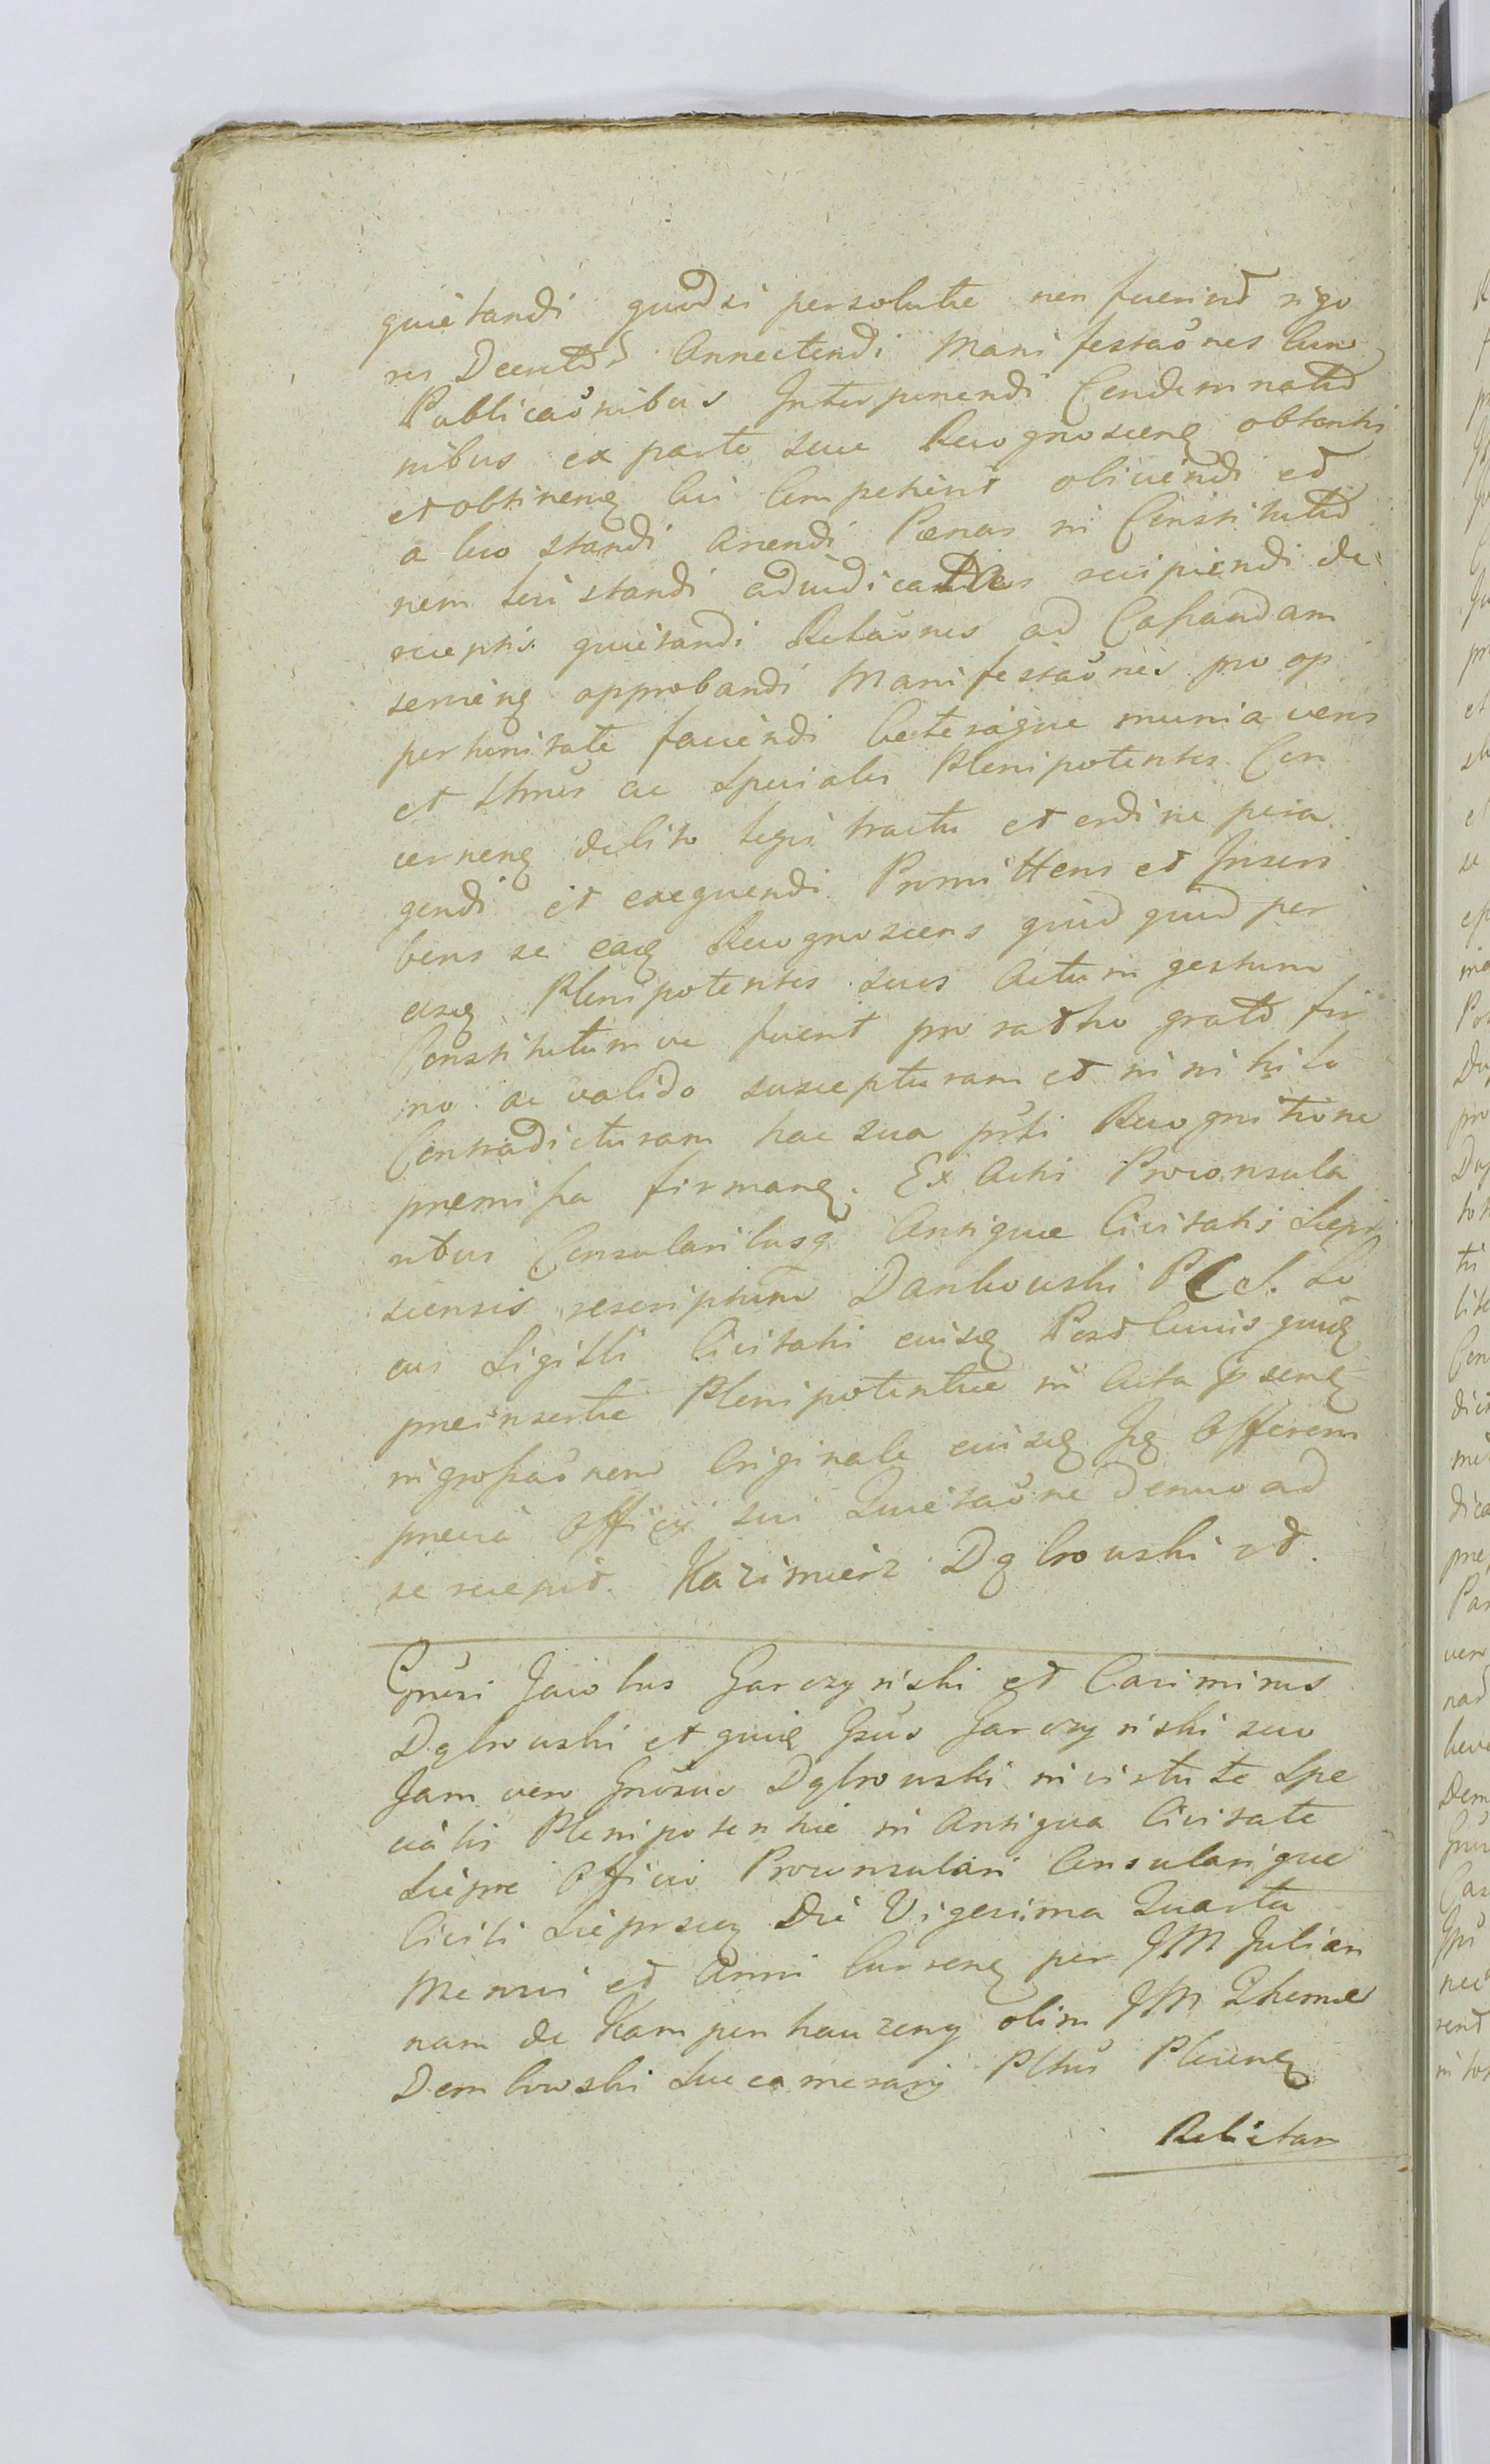 quietandi quodsi persolutæ non fuerint rigo
res Decretor Annectendi Manifestaones Cum
Publicaonibus Interponendi Condemnatio
nibus ex parte suæ Recognoscenę obtentis
et obtinenę Cui Competierit oliuendi et
a luo standi Arendi Pænas in Constitutio
nem Juri standi adiudicatas recipiendi de
receptis quietandi Relaones ad Cassandam
seruienę approbandi Manifestaones pro op
portunitate faciendi Cæteraque munia veris
et Ltmis ac Specialis Plenipotentis Con
cernenę debito legis tractu et ordine pera
gendi et exequendi Promittens et Inscri
bens se eadę Recognoscens quid quid per
eosdę Plenipotentes suos Actum gestum
Constitutum ve fuerit pro ratho grato fir
mo ac valido suscepturam et in nihilo
Contradicturam hac sua prnti Recognitione
premissa firmanę. Ex Actis Proconsula
ribus Consularibusq Antiquæ Civitatis Siepr
sciensis rescriptum Dankowski P C S. Lo
cus Sigilli Civitatis eiusdę Post Cuius quidę
preinsertæ Plenipotentiæ in Acta psenę
ingrossaonem Originale eiusdę Idę Offerens
preuia Officii sui Quietaone denuo ad
se recepit. Kazimierz Dąbrowski rd.
Gnrosi Jacobus Garczynski et Casimirus
Dąbrowski et quidę Gsus Garczynski suo
Jam vero Gnrosus Dąbrowski in virtute Spe
cialis Plenipotentiæ in Antiqua Civitate
Siepræ Officio Proconsulari Consularique
Civili Sieprscen Die Vigesima Quarta
Mensis et Anni Currenę per JM Julian
nam de Kampenhauzeny olim JM Thomæ
Dembowski Succamerarij Pltus Plocenę
Relictam